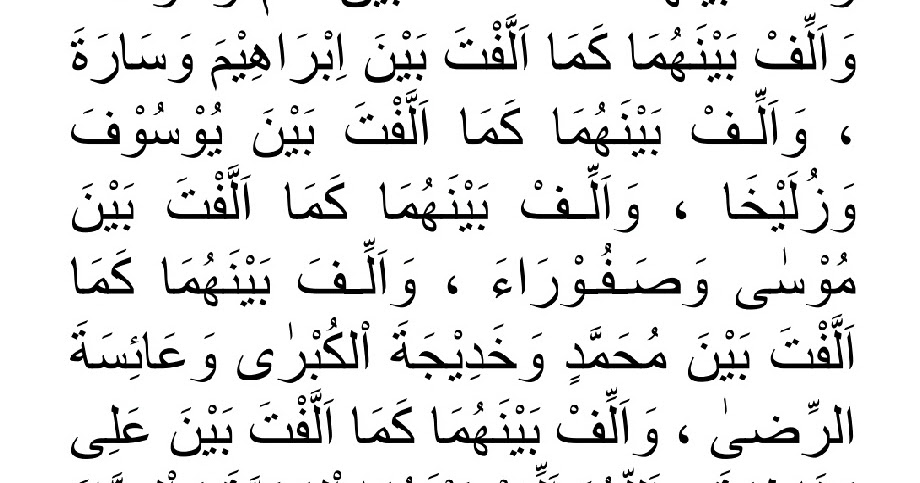 وَاَلِّفْ بَيْنَهُمَا كَمَا اَلَّفْتَ بَيْنَ اِبْرَاهِيْمَ وَسَارَةَ
، وَاَلِّـفْ بَيْنَهُمَا كَمَا اَلَّفْتَ بَيْنَ يُوْسُوْفَ
وَزُلَيْخَا ، وَاَلِّـفْ بَيْنَهُمَا كَمَا اَلَّفْتَ بَيْنَ
مُوْسٰى وَصَـفُـوْرَاءَ ، وَاَلِّـفَ بَيْنَهُمَا كَمَا
اَلَّفْتَ بَيْنَ مُحَمَّدٍ وَخَدِيْجَةَ اْلكُبْرٰى وَعَائِسَةَ
الرِّضىٰ ، وَاَلِّفْ بَيْنَهُمَا كَمَا اَلَّفْتَ بَيْنَ عَلِى